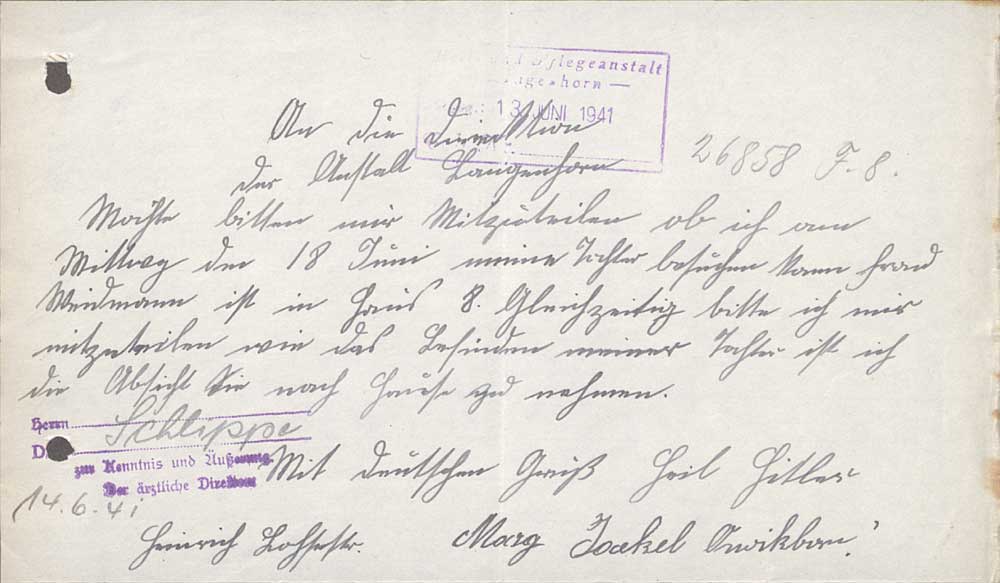 Heil- und Pflegeanstalt
Langenhorn —
13. JUNI 1941
An die Direktion
der Anstalt Langenhorn
26858 F. 8.
Möchte bitten mir Mitzuteilen ob ich am
Mittwog den 18 Juni meine Tochter besuchen kann Frau
Weidmann ist in Haus 8. Gleichzeitig bitte ich mir
mitzuteilen wie das Befinden meiner Tochter ist ich
die Absicht Sie nach Hause zu nehmen.
Herrn
Schlippe
D
zur Kenntnis und Äußerung.
Der ärztliche Direktor
14.6.41
Mit deutschen Gruß Heil Hitler
Heinrich Lohsestr. Marg Jaekel